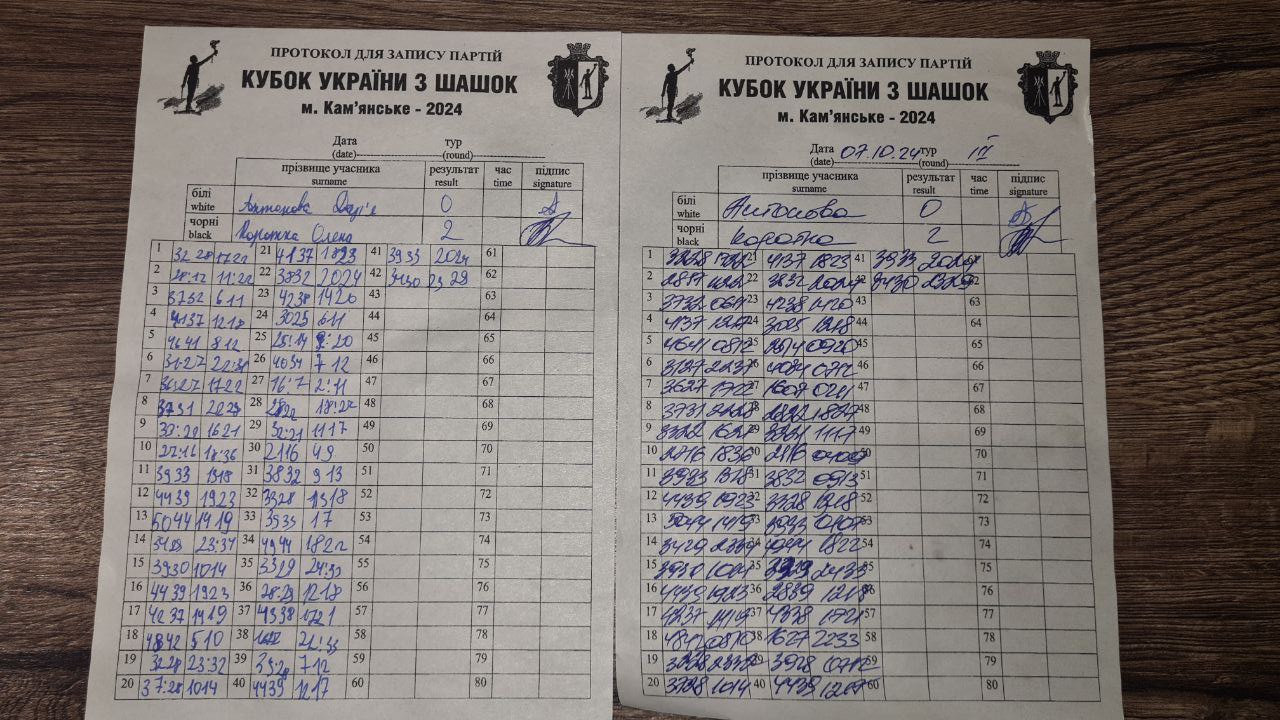 ПРОТОКОЛ ДЛЯ ЗАПИСУ ПАРТІЙ
КУБОК УКРАЇНИ З ШАШОК
м. Кам'янське - 2024
Дата тур
(date) (round)
прізвище учасника результат час підпис
surname result time signature
білі
white Антонова Дар'я 0
чорні
black Коротка Олена 2
1 32 28 21 4137 1823 41 3933 2024 61
2 11:22 22 3832 2024 42 3430 23 29 62
3 3732 6 11 23 4238 1420 43 63
4 4137 1218 24 3025 6 11 44 64
5 4641 8 12 25 25:14 9:20 45 65
6 31:27 22:31 26 4034 7 12 46 66
7 36:27 1722 27 16:7 2:11 47 67
8 3731 28 18:27 48 68
9 1621 29 32:21 1117 49 69
10 27:16 18:36 30 2116 4 9 50 70
11 3933 1318 31 3832 9 13 51 71
12 4439 1923 32 3328 1318 52 72
13 5044 1419 33 3933 1 7 53 73
14 34 34 4944 1822 54 74
15 3930 1014 35 3329 24:33 55 75
16 4439 1923 36 28:39 1218 56 76
17 4237 1419 37 4338 1721 57 77
18 4842 5 10 38 58 78
19 23:32 39 7 12 59 79
20 37:28 1014 40 4439 1217 60 80
ПРОТОКОЛ ДЛЯ ЗАПИСУ ПАРТІЙ
КУБОК УКРАЇНИ З ШАШОК
м. Кам'янське - 2024
Дата 07.10.24 тур III
(date) (round)
прізвище учасника результат час підпис
surname result time signature
білі
white Антонова 0
чорні
black Коротка 2
1 3228 21 4137 1823 41 3933 2024
2 22 3832 2024 42 3430 2329 62
3 3732 0611 23 4238 1420 43 63
4 4137 24 3025 44 64
5 4641 0812 25 2514 0920 45 65
6 3127 2231 26 4034 0712 46 66
7 3627 1722 27 1607 0211 47 67
8 3731 28 1827 48 68
9 29 1117 49 69
10 2716 1836 30 2116 0409 50 70
11 3933 1318 31 3832 0913 51 71
12 4439 1923 32 3328 1318 52 72
13 5044 1419 33 3933 0107 53 73
14 3429 34 4944 1822 54 74
15 3930 1014 35 2433 55 75
16 4439 1923 36 2839 1218 56 76
17 4237 1419 37 4338 1721 57 77
18 4842 0510 38 1627 2233 58 78
19 3228 2332 39 3928 0712 59 79
20 3728 1014 40 4439 60 80